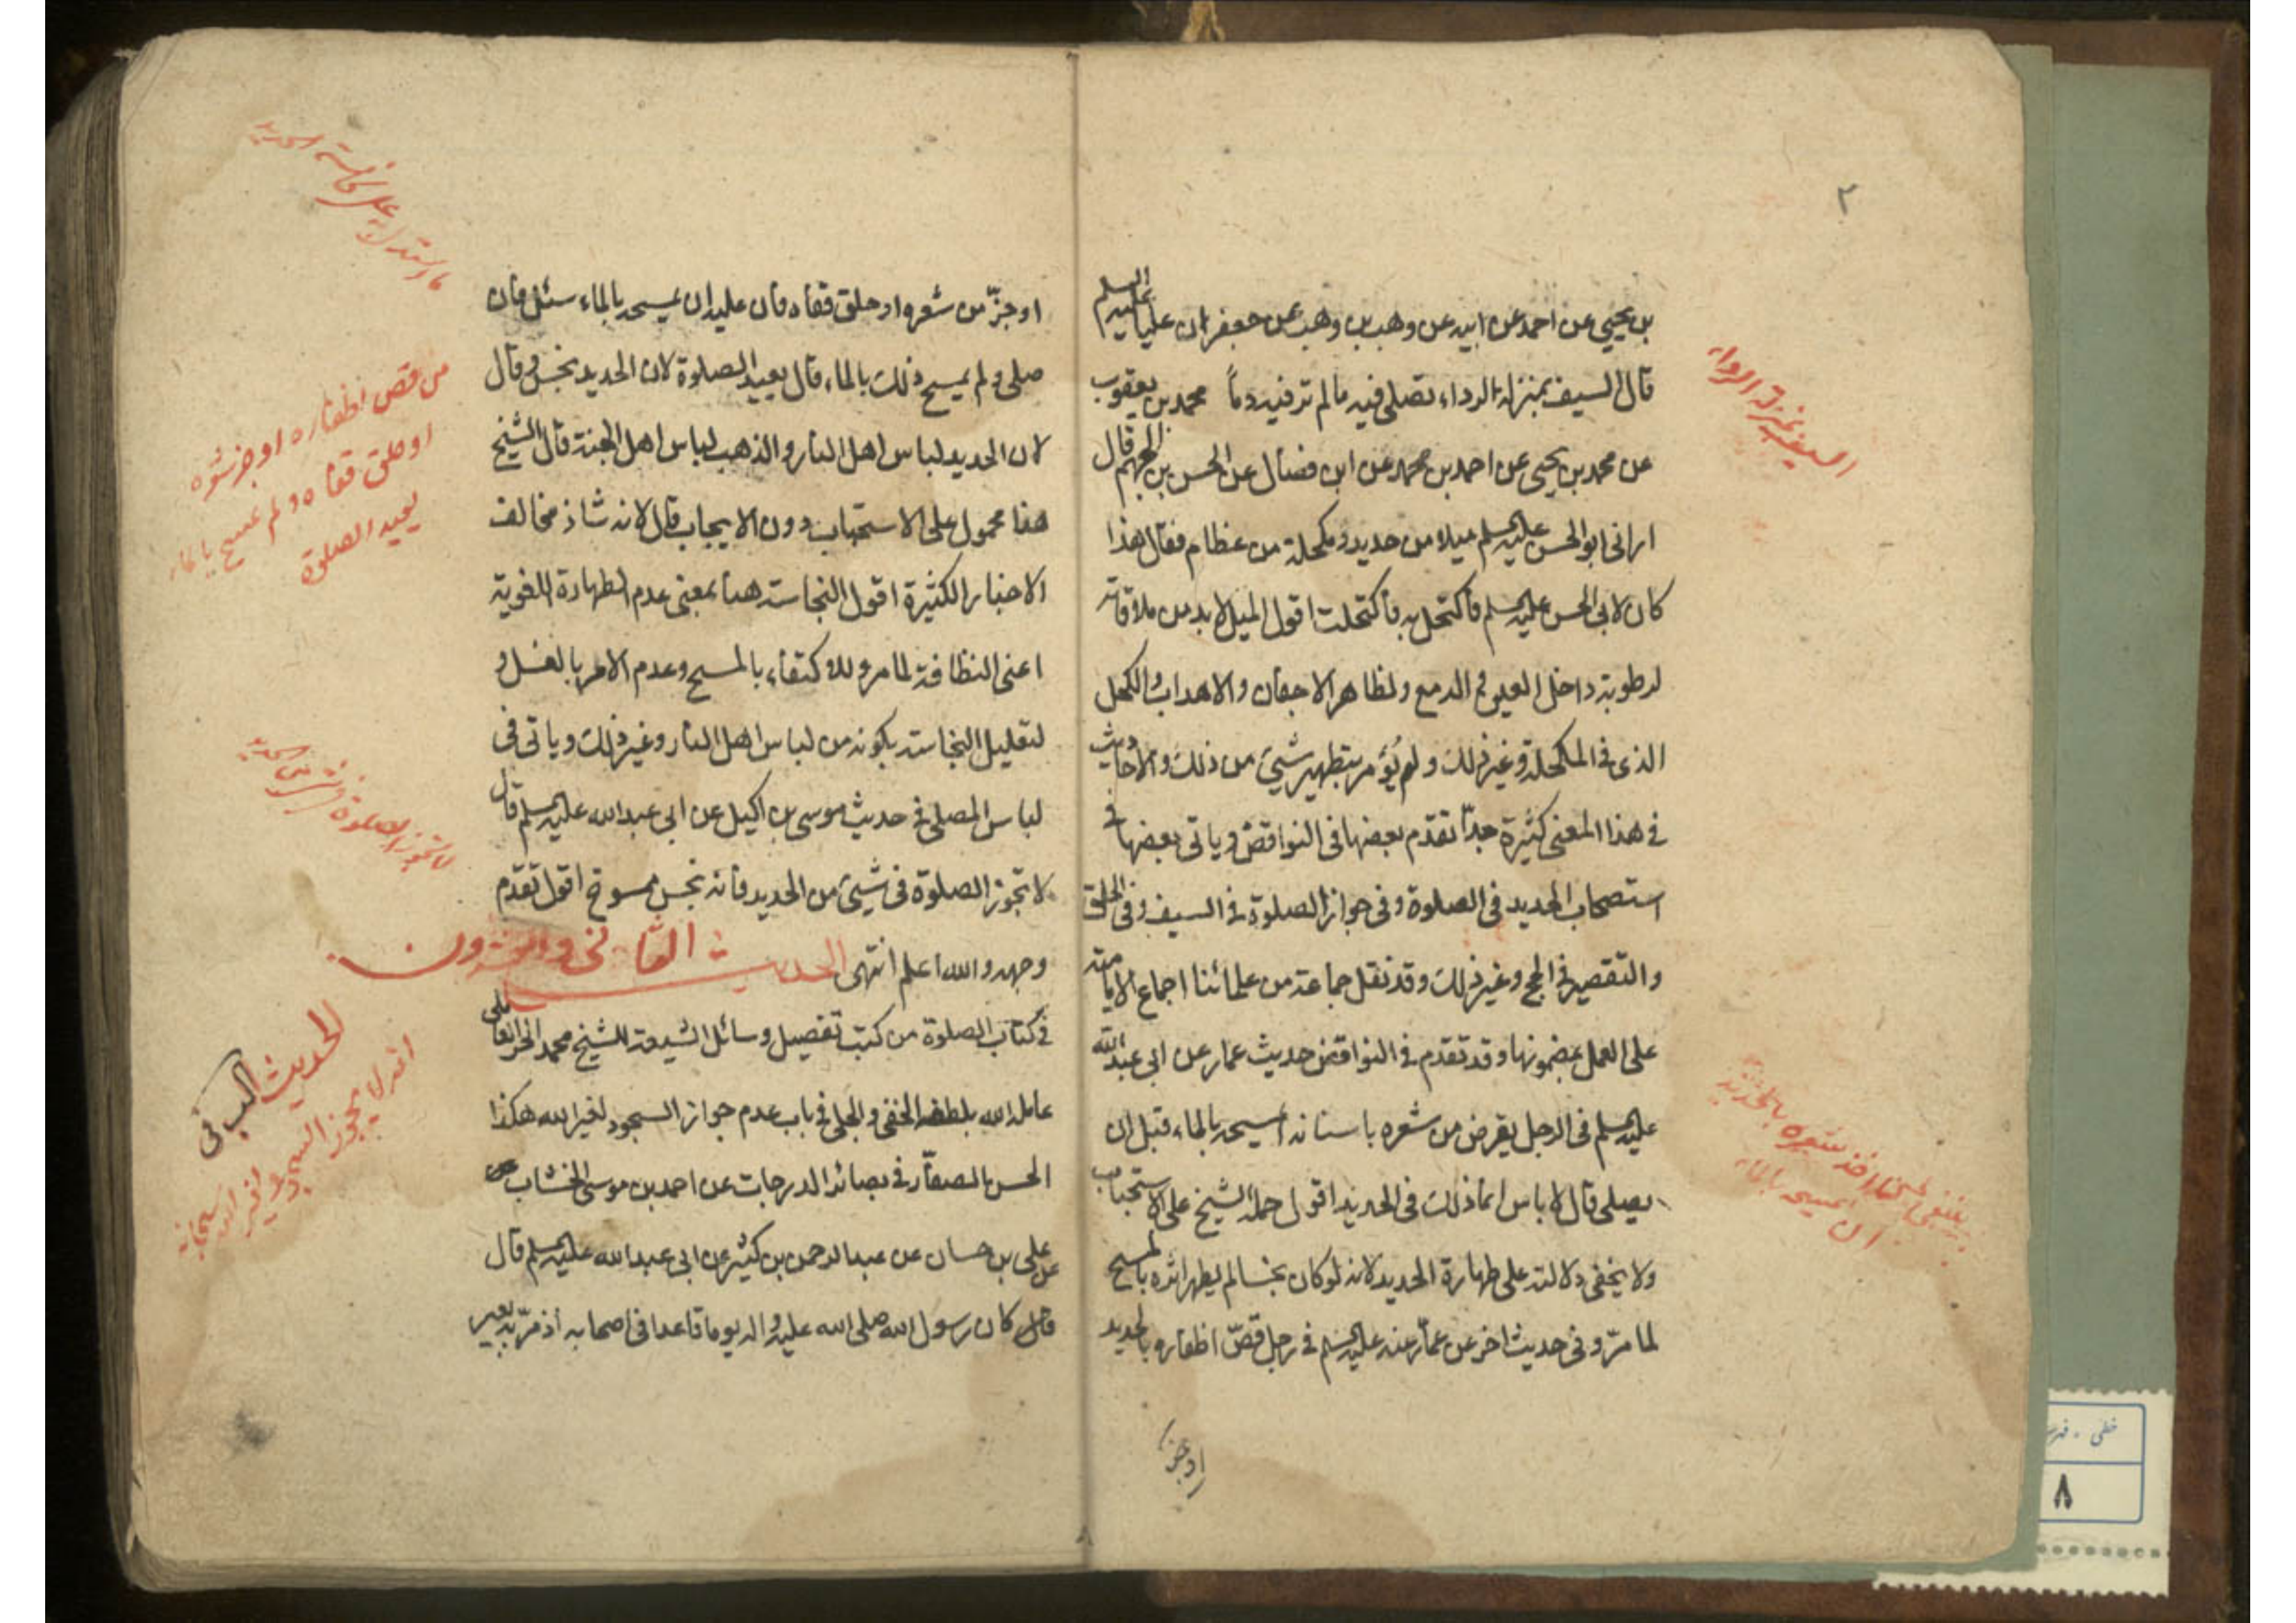 ٢
السلم
بن يحيى عن احمد عن ابيه عن وهب بن وهب عن جعفر ان عليا عليه
قال السيف بمنزلة الرداء تصلى فيه ما لم تر فيه دماً محمد بن يعقوب
عن محمد بن يحيى عن احمد بن محمد عن ابن فضال عن الحسن بن الجهم قال
ارانى ابو الحسن عليه السلم ميلا من حديد و مكحلة من عظام فقال هذا
كان لابى الحسن عليه السلم فاكتحل به فاكتحلت اقول الميل لا بد من ملاقاته
لرطوبة داخل العين و الدمع و لظاهر الاجفان و الاهداب و الكحل
الذى فى المكحلة و غير ذلك و لم يُؤمر بتطهير شيئ من ذلك و الاحاديث
فى هذا المعنى كثيرة جدّا تقدم بعضها فى النواقض و ياتى بعضها فى
استصحاب الحديد فى الصلوة و فى جواز الصلوة فى السيف و فى الحلق
و التقصير فى الحج و غير ذلك و قد نقل جماعة من علمائنا اجماع الامامية
على العمل بمضمونها و قد تقدم فى النواقض حديث عمار عن ابى عبد الله
عليه السلم فى الرجل يقرض من شعره باسنانه أ يمسحه بالماء قبل ان
يصلى قال لا باس انما ذلك فى الحديد اقول حمله الشيخ على الاستحباب
ولا يخفى دلالته على طهارة الحديد لانه لو كان نجسا لم يطهر اثره بالمسح
لما مرّ و فى حديث اخر عن عمار عنه عليه السلم فى رجل قصّ اظفاره بالحديد
او جز
السيف بمنزلة الرداء
شعره
ان يمسحه بالماء
او جزّ من شعره او حلق قفاه فان عليه ان يمسحه بالماء سئل فان
صلى و لم يمسح ذلك بالماء قال يعيد الصلوة لان الحديد نجس و قال
لان الحديد لباس اهل النار و الذهب لباس اهل الجنة قال الشيخ
هذا محمول على الاستحباب دون الايجاب قال لانه شاذ مخالف
الاخبار الكثيرة اقول النجاسة هنا بمعنى عدم الطهارة اللغوية
اعنى النظافة لما مر و للاكتفاء بالمسح و عدم الامر بالغسل و
لتعليل النجاسة بكونه من لباس اهل النار و غير ذلك و ياتى فى
لباس المصلى فى حديث موسى بن اكيل عن ابى عبد الله عليه السلم قال
لا تجوز الصلوة فى شيئ من الحديد فانه نجس ممسوخ اقول تقدم
وجهه و الله اعلم انتهى الحديث الثانى و العشرون
فى كتاب الصلوة من كتب تفصيل وسائل الشيعة للشيخ محمد الحر العاملى
عامله الله بلطفه الخفى و الجلى فى باب عدم جواز السجود لغير الله هكذا
الحسن الصفار فى بصائر الدرجات عن احمد بن موسى الخشاب عن
على بن حسان عن عبد الرحمن بن كثير عن ابى عبد الله عليه السلم قال
قال كان رسول الله صلى الله عليه و اله يوما قاعدا فى اصحابه اذ مرّ به بعير
من قص اظفاره او جز شعره
او حلق قفاه و لم يمسح بالماء
يعيد الصلوة
لا تجوز الصلوة فى شيئ من الحديد
الحديث
انه لا يجوز السجود لغير الله سبحانه
٨